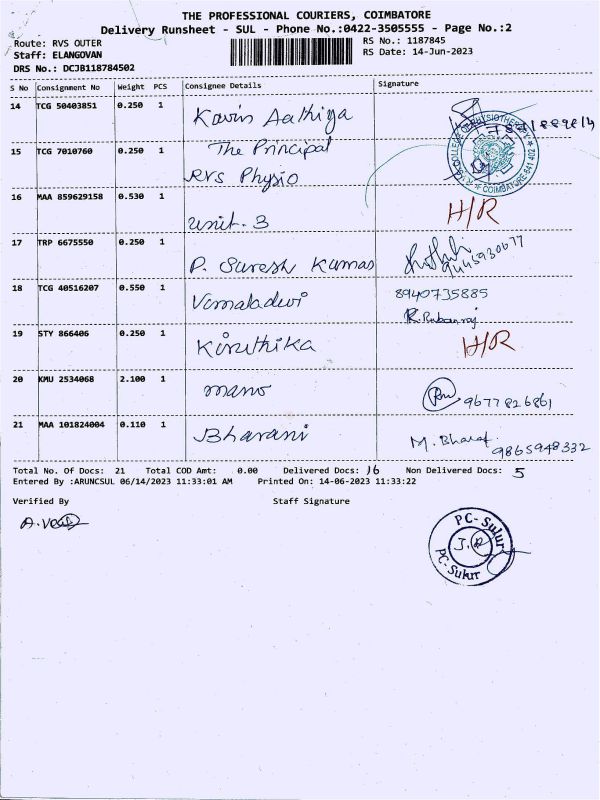 THE PROFESSIONAL COURIERS, COIMBATORE
Delivery Runsheet - SUL - Phone No.:0422-3505555 - Page No.:2
Route: RVS OUTER
RS No.: 1187845
Staff: ELANGOVAN
RS Date: 14-Jun-2023
DRS No.: DCJB118784502
S No Consignment No Weight PCS Consignee Details Signature
14 TCG 50403851 0.250 1 Kavin Aathiya
15 TCG 7010760 0.250 1 The Principal
RVS Physio
COLLEGE OF PHYSIOTHERAPY
COIMBATORE-641 402
16 MAA 859629158 0.530 1 H/R
unit. 3
17 TRP 6675550 0.250 1
P. Suresh Kumar 9445930677
18 TCG 40516207 0.550 1 Vimaladevi 8940735885
19 STY 866406 0.250 1 Kiruthika H/R
20 KMU 2534068 2.100 1 mano 9677826861
21 MAA 101824004 0.110 1 Bharani M. Bharat
9865948332
Total No. Of Docs: 21 Total COD Amt: 0.00 Delivered Docs: 16 Non Delivered Docs: 5
Entered By :ARUNCSUL 06/14/2023 11:33:01 AM Printed On: 14-06-2023 11:33:22
Verified By Staff Signature
PC-Sulur
J.R
PC-Sulur